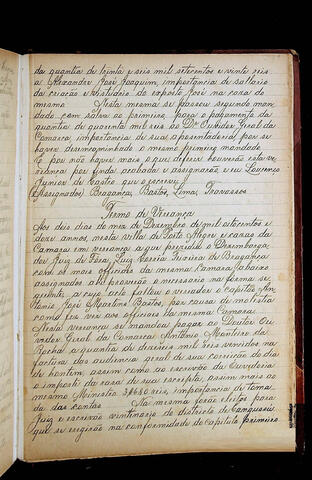 da quantia de trinta e seis mil setecentos e vinte reis
a Alexandre José Joaquim, importancia de sallario
da criação e vistuario do exposto José na casa do
mesmo Nesta mesma se passou segundo man-
dado com salva ao primeiro, para o pagamento da
quantia de quarenta mil reis ao Dr. Ouvidor Geral da
Comarca importancia de sua aposentadoria por se
haver desencaminhado o mesmo primeiro mandado
E por não haver mais o que deferir houverão esta ve-
reança por finda acabada e assignarão e eu Lourenço
Junior de Castro que o escrevi.
(Assignados) Bragança, Bastos, Lima, Travassos
Termo de Vereança
Aos dois dias do mez de Dezembro de mil oitocentos e
doze annos, nesta villa de Porto Alegre e casas da
Camara em vereança a que presidio o Desembarga-
dor Juiz de Fóra, Luiz Corrêa Teixeira de Bragança
com os mais officiaes da mesma Camara abaixo
assignados ahi proverão o necessario na forma se-
guinte, a cujo acto faltou o vereador o capitão An-
tonio José Martins Bastos, por causa de molestia
como fez ver aos officiaes da mesma Camara
Nesta vereança se mandou pagar ao Doutor Ou-
vidor Geral da Comarca Antonio Monteiro da
Rocha a quantia de dezeseis mil reis vencidos na
factura das audiencia geral de sua correição do dia
de hontem, assim como ao escrivão da Ouvidoria
o importe da casa de sua escripta, assim mais ao
mesmo Ministro 38$680 reis, importancia de toma-
da das contas Na mesma forão eleitos para
Juiz e escrivão vintenario do districto de Cangussú
que se eregirão na conformidade do capitulo primeiro